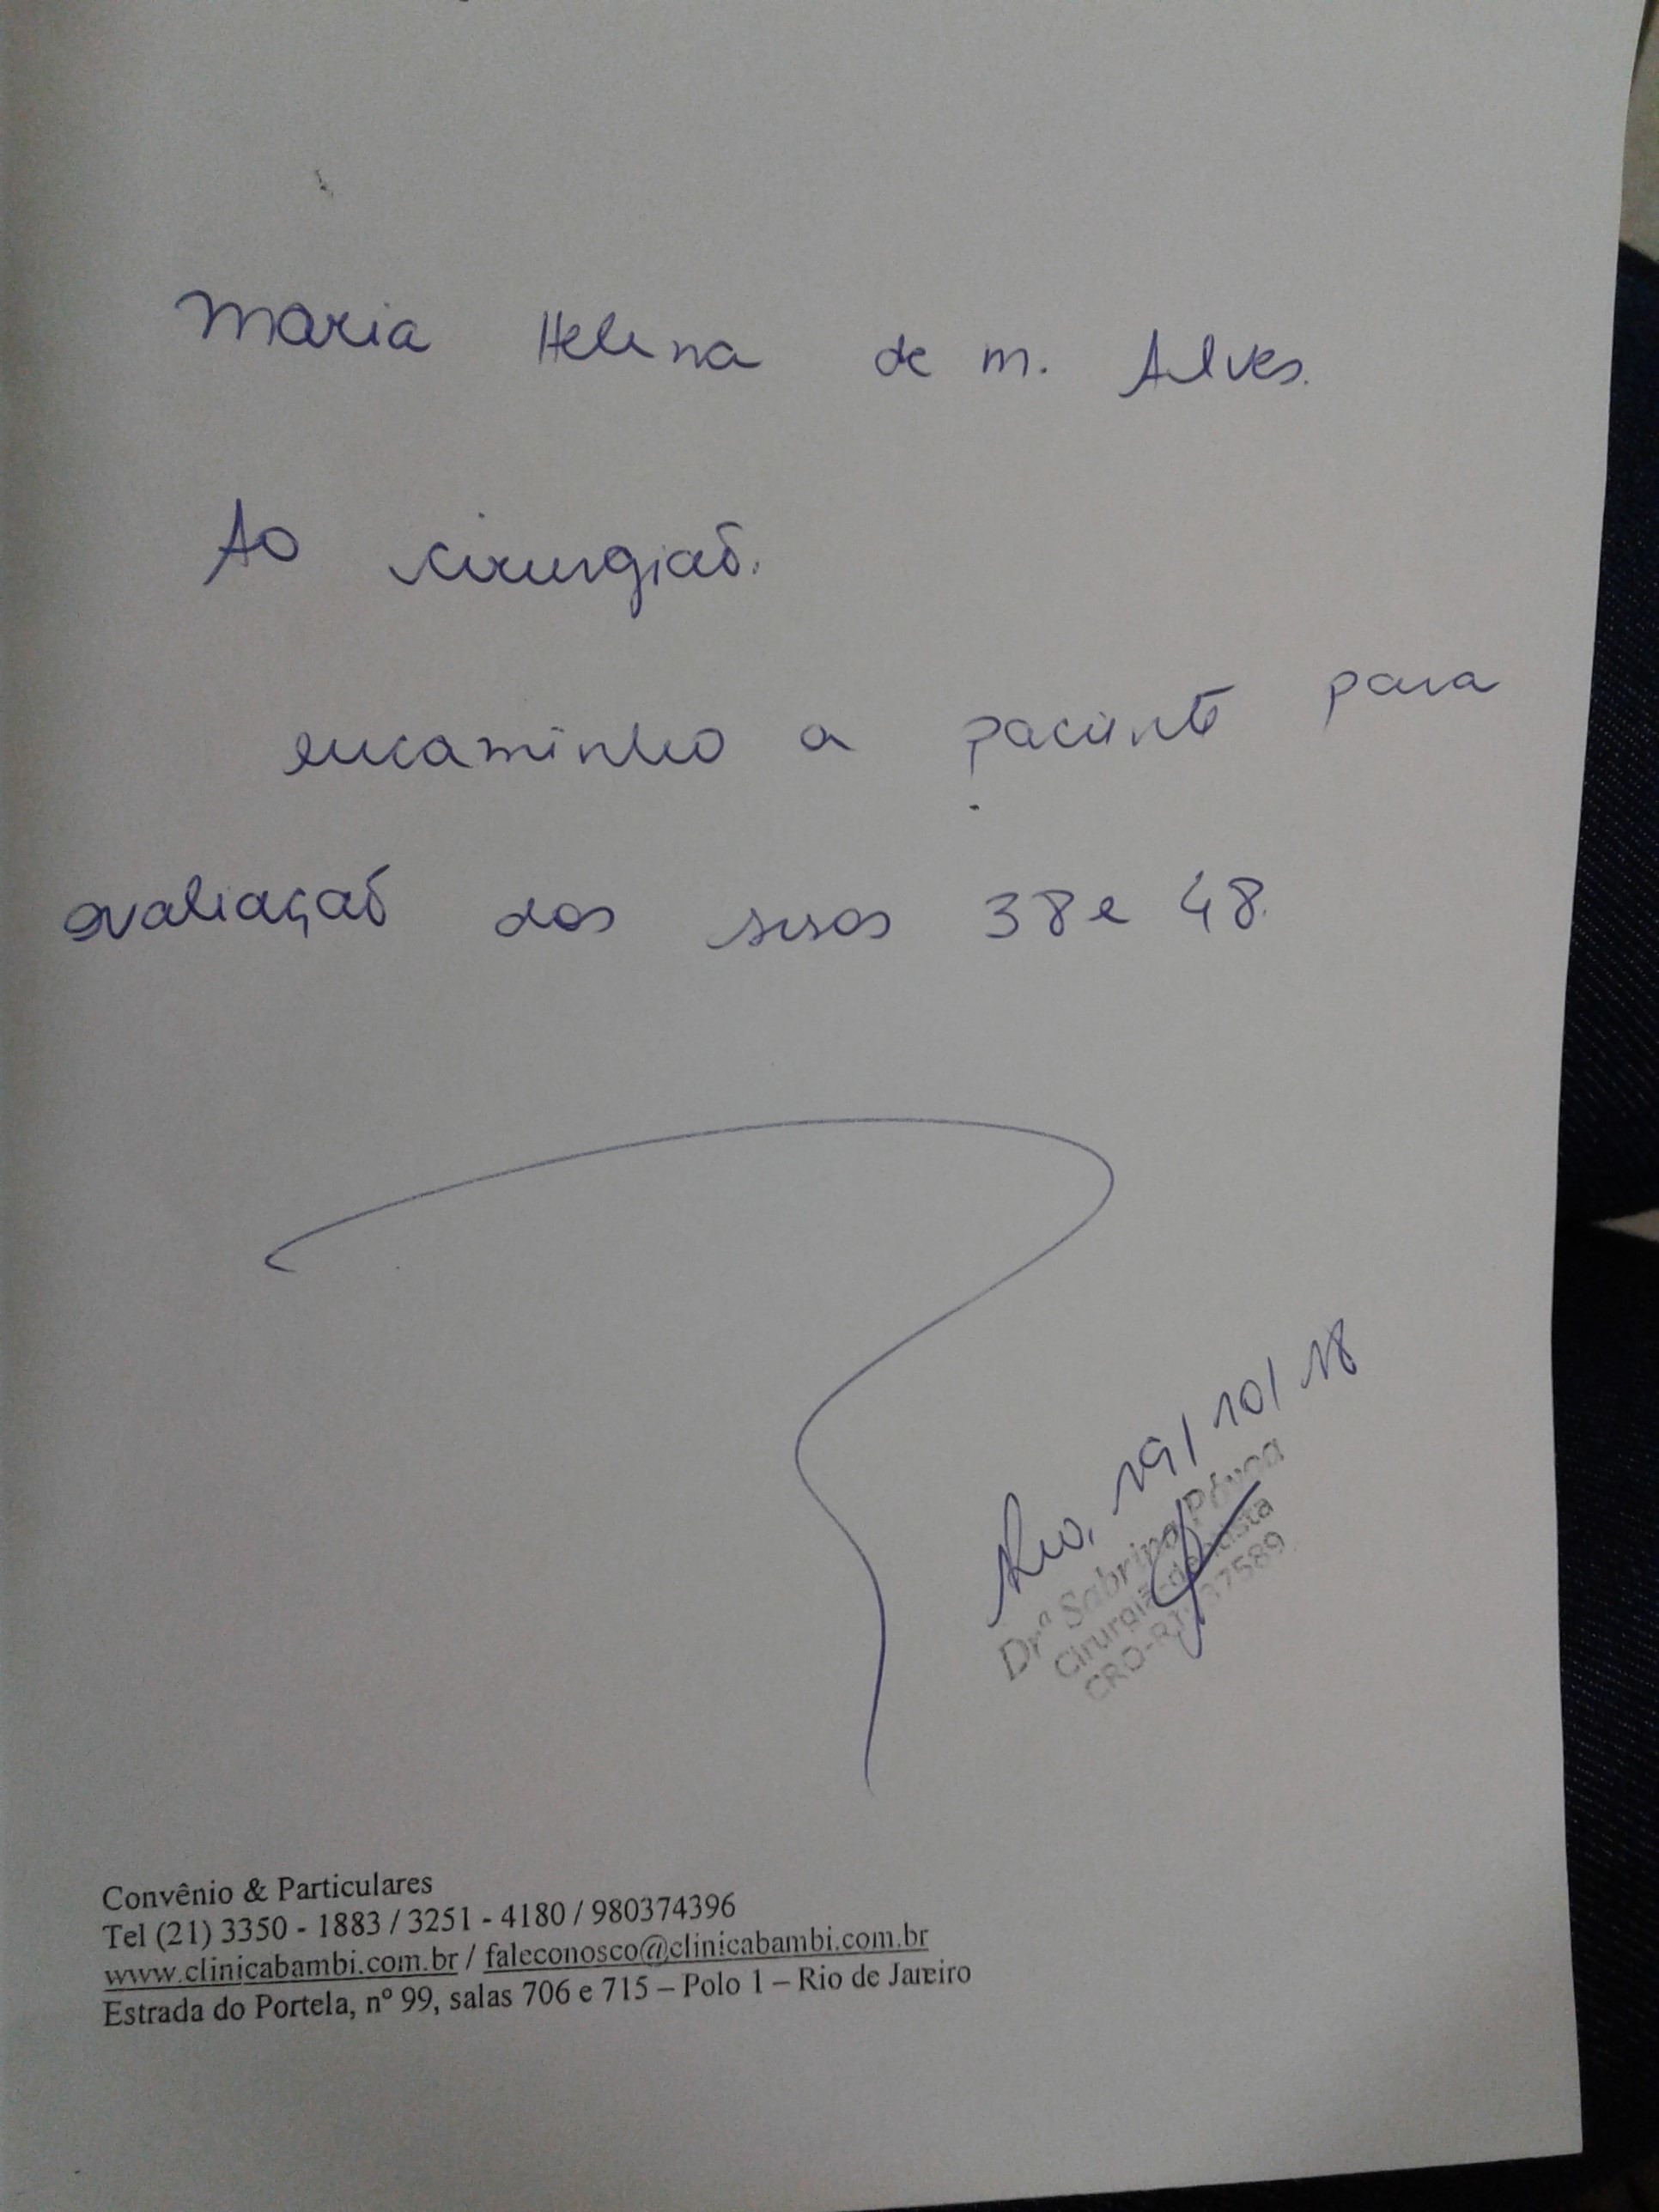 Maria Helena de M. Alves.
Ao cirurgião.
encaminho a paciente para
avaliação dos sisos 38 e 48.
Rio, 19/10/18
Drª Sabrina Póvoa
Cirurgiã-dentista
CRO-RJ 37589
Convênio & Particulares
Tel (21) 3350 - 1883 / 3251 - 4180 / 980374396
www.clinicabambi.com.br / faleconosco@clinicabambi.com.br
Estrada do Portela, nº 99, salas 706 e 715 – Polo 1 – Rio de Janeiro